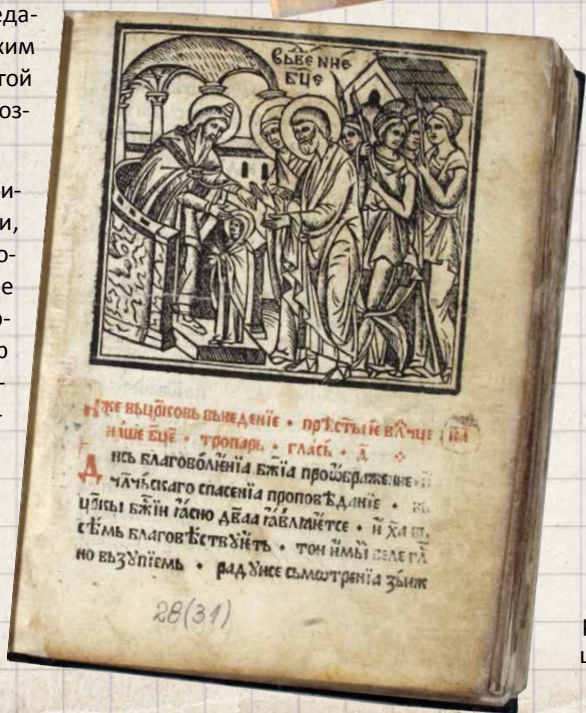 еда-
ким
гой
оз-
ри-
и,
о-
ие
о-
р
-
-
вьве нне
бце
же вьцр҃ковь вьведенїе • прѣст҃ыїе вл҃чце
наше бц҃е • тропарь • гла́сь • д҃
Днсь благоволѥнїа бж҃їа проѡбраженїе
чл҃чьскаго спасенїа проповѣданїе •
цр҃кы бж҃їи ꙗсно дв҃аа ꙗвлꙗѥтсе • и х҃а
сѣмь благовѣствꙋѥть • тои и мы веле гл҃
но вьзꙋпїемь • радꙋисе сьмотренїа зьиж
28(31)